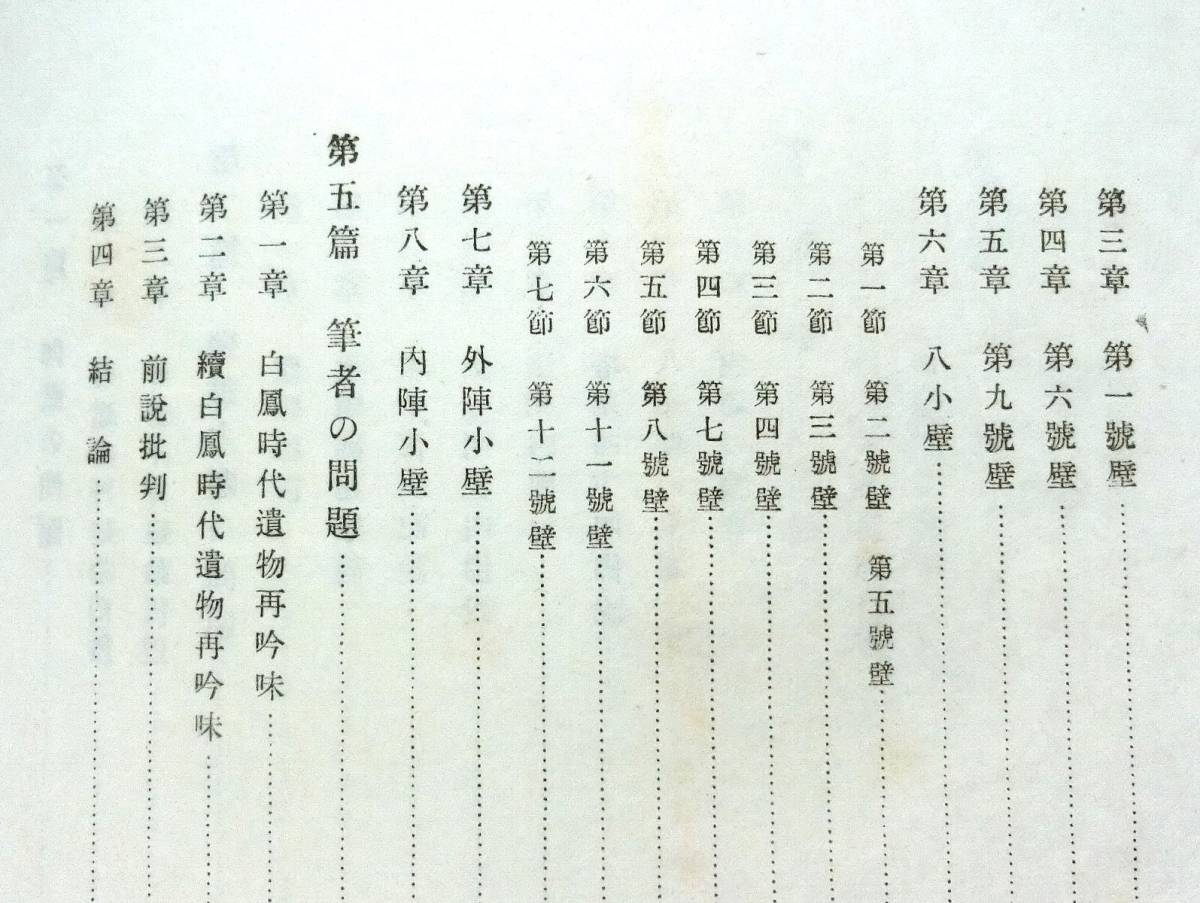 第三章　第一號壁
第四章　第六號壁
第五章　第九號壁
第六章　八小壁
第一節　第二號壁　第五號壁
第二節　第三號壁
第三節　第四號壁
第四節　第七號壁
第五節　第八號壁
第六節　第十一號壁
第七節　第十二號壁
第七章　外陣小壁
第八章　內陣小壁
第五篇　筆者の問題
第一章　白鳳時代遺物再吟味
第二章　續白鳳時代遺物再吟味
第三章　前說批判
第四章　結論